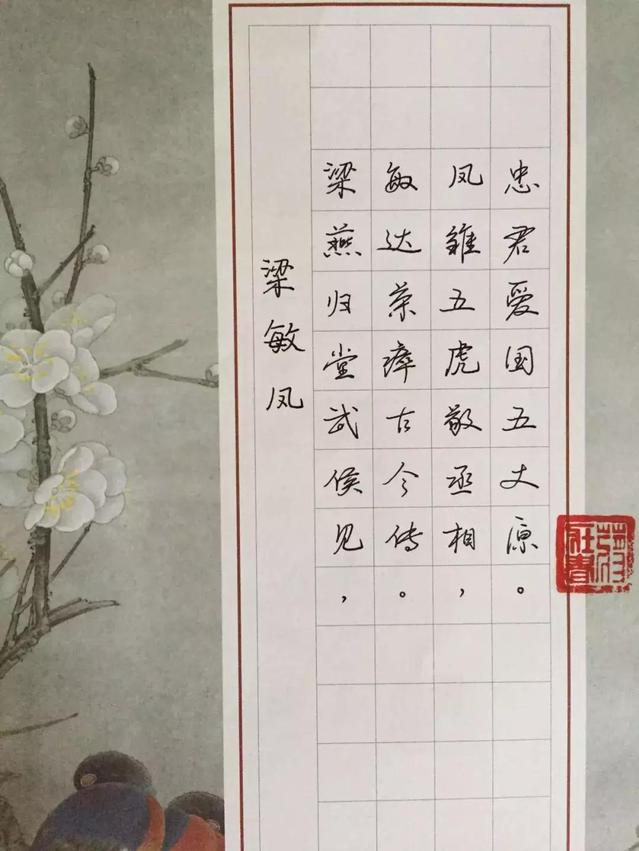 梁敏凤
梁燕归堂武侯见，
敏达荣瘁古今传。
凤雏五虎敬丞相，
忠君爱国五丈原。